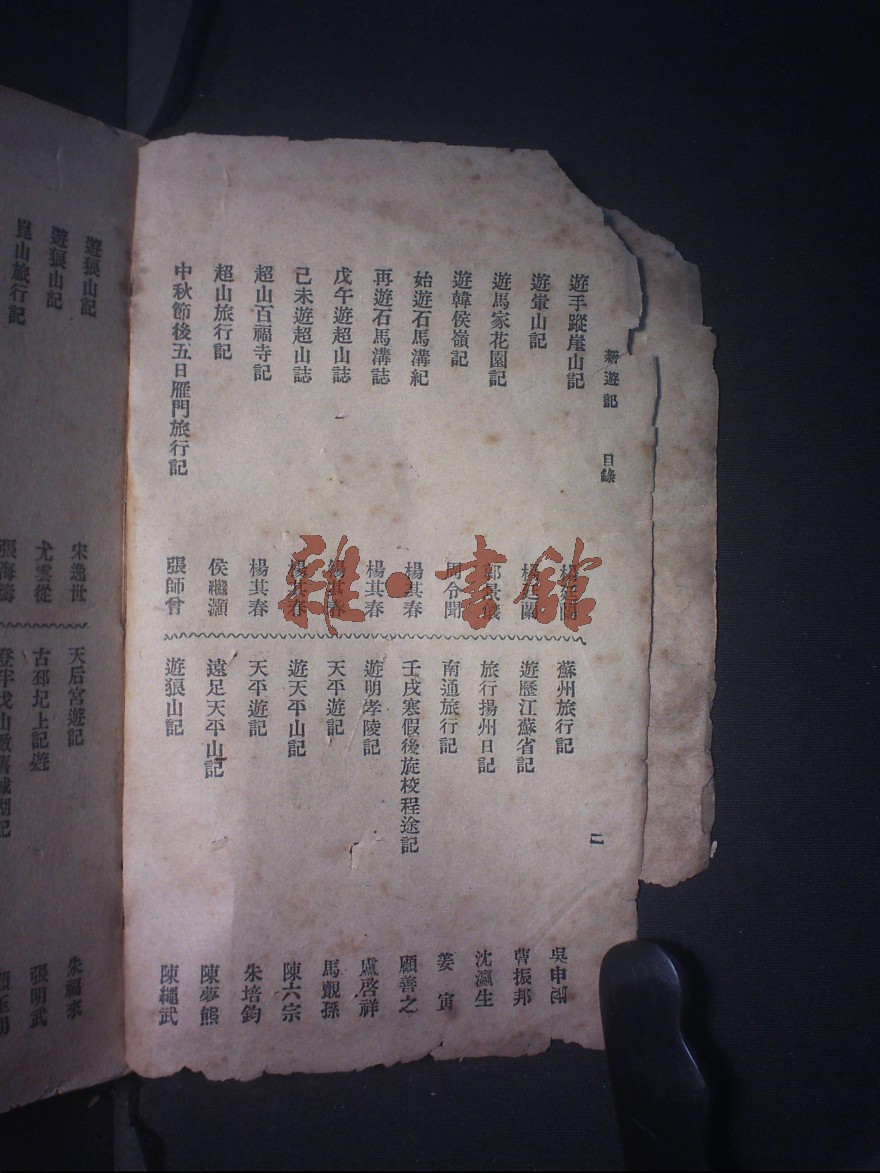 新遊記 目錄 二
遊手蹤崖山記
遊黌山記
遊馬家花園記
遊韓侯嶺記 周令聞
始遊石馬溝紀 楊其春
再遊石馬溝誌 楊其春
戊午遊超山誌 楊其春
己未遊超山誌 楊其春
超山百福寺記 楊其春
超山旅行記 侯繼灝
中秋節後五日雁門旅行記 張師曾
蘇州旅行記 吳申
遊歷江蘇省記 曹振邦
旅行揚州日記 沈瀛生
南通旅行記 姜寅
壬戌寒假後旋校程途記 顧善之
遊明孝陵記 盧啓祥
天平遊記 馬覲孫
遊天平山記 陳六宗
天平遊記 朱培鈞
遠足天平山記 陳夢熊
遊狼山記 陳繩武
遊狼山記 宋逸世
遊狼山記 尤雲從
崑山旅行記 張海濤
天后宮遊記 朱福來
古邳圯上記遊 張明武
雜·書館